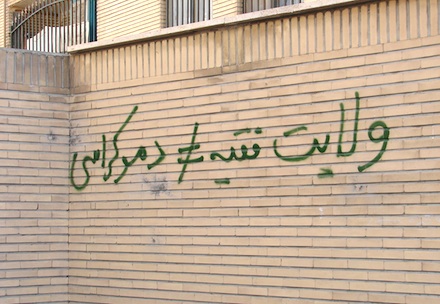 ولایت فقیه ≠ دموکراسی